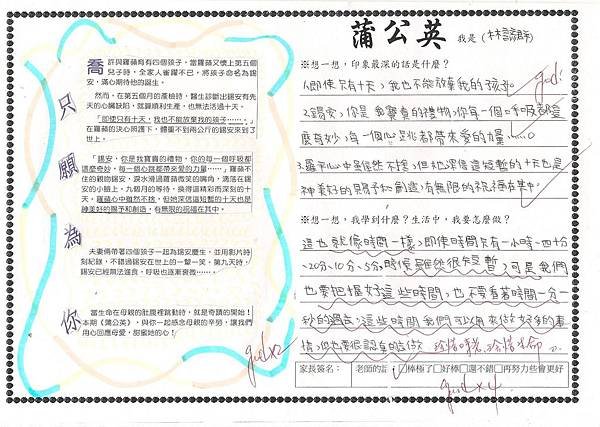 只願為你
喬許與羅蘋育有四個孩子,當羅蘋又懷上第五個
兒子時,全家人雀躍不已,將孩子命名為錫
安,滿心期待他的誕生。
然而,在第五個月的產檢時,醫生診斷出錫安有先
天的心臟缺陷,就算順利生產,也無法活過十天。
「即使只有十天,我也不能放棄我的孩子……。」
在羅蘋的決心照護下,體重不到兩公斤的錫安來到了
世上。
「錫安,你是我寶貴的禮物,你的每一個呼吸都
這麼奇妙,每一個心跳都帶來愛的力量……」羅蘋不
住的親吻錫安,淚水滑過羅蘋微笑的嘴角,滴落在錫
安的小臉上,九個月的等待,換得這精彩而深刻的十
天。羅蘋心中雖然不捨,但她深信這短暫的十天也是
神美好的賜予和創造,有無限的祝福在其中。
夫妻倆帶著四個孩子一起為錫安慶生,並用影片時
刻紀錄,不錯過錫安在世上的一顰一笑。第九天時,
錫安已經無法進食,呼吸也逐漸衰微……。
當生命在母親的肚腹裡跳動時,就是奇蹟的開始!
本期《蒲公英》,與你一起感念母親的辛勞,讓我們
用心回應母愛,甜蜜她的心!
good×2
蒲公英 我是(林
※想一想,印象最深的話是什麼?
1.即使只有十天,我也不能放棄我的孩子。
good!
2.錫安,你是我寶貴的禮物,你每一個呼吸都這
麼奇妙,每一個心跳都帶來愛的力量……。
3.羅蘋心中雖然不捨,但他深信這短暫的十天也是
神美好的賜予和創造,有無限的祝福在其中。
※想一想,我學到什麼?生活中,我要怎麼做?
這也就像時間一樣,即使時間只有一小時、四十分
、20分、10分、5分,時候雖然很短暫,可是我們
也要把握好這些時間,也不要看著時間一分一
秒的過去,這些時間我們可以用來做好多的事
情,但也要很認真的去做
珍惜時光,珍惜生命
家長簽名: 老師的話:□棒極了□好棒□還不錯□再努力些會更好
good×4